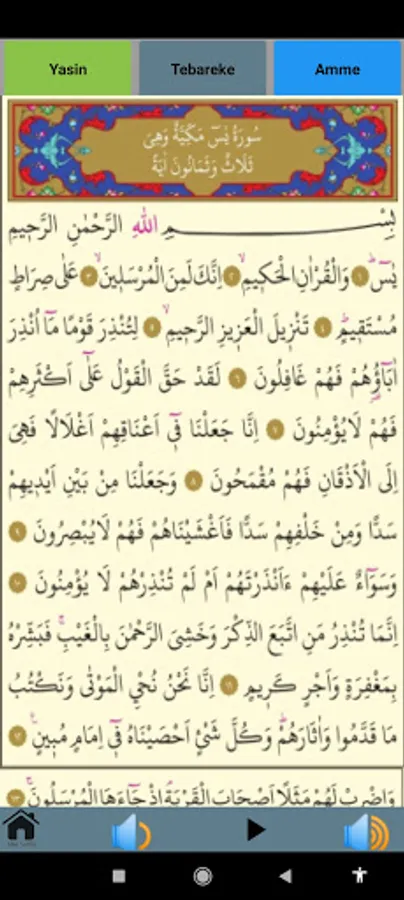 Yasin
Tebareke
Amme
سُورَةُ يٰسٓ مَكِّيَّةٌ وَهِيَ
ثَلَاثٌ وَثَمَانُونَ اٰيَةً
بِسْمِ اللّٰهِ الرَّحْمٰنِ الرَّحِيمِ
يٰسٓ ۚ ﴿١﴾ وَالْقُرْاٰنِ الْحَكِيمِ ۙ ﴿٢﴾ اِنَّكَ لَمِنَ الْمُرْسَلِينَ ۙ ﴿٣﴾ عَلٰى صِرَاطٍ
مُسْتَقِيمٍ ۜ ﴿٤﴾ تَنْزِيلَ الْعَزِيزِ الرَّحِيمِ ۙ ﴿٥﴾ لِتُنْذِرَ قَوْمًا مَٓا اُنْذِرَ
اٰبَٓاؤُ۬هُمْ فَهُمْ غَافِلُونَ ﴿٦﴾ لَقَدْ حَقَّ الْقَوْلُ عَلٰٓى اَكْثَرِهِمْ
فَهُمْ لَا يُؤْمِنُونَ ﴿٧﴾ اِنَّا جَعَلْنَا فِٓي اَعْنَاقِهِمْ اَغْلَالًا فَهِيَ
اِلَى الْاَذْقَانِ فَهُمْ مُقْمَحُونَ ﴿٨﴾ وَجَعَلْنَا مِنْ بَيْنِ اَيْدِيهِمْ
سَدًّا وَمِنْ خَلْفِهِمْ سَدًّا فَاَغْشَيْنَاهُمْ فَهُمْ لَا يُبْصِرُونَ ﴿٩﴾
وَسَوَٓاءٌ عَلَيْهِمْ ءَاَنْذَرْتَهُمْ اَمْ لَمْ تُنْذِرْهُمْ لَا يُؤْمِنُونَ ﴿١٠﴾
اِنَّمَا تُنْذِرُ مَنِ اتَّبَعَ الذِّكْرَ وَخَشِيَ الرَّحْمٰنَ بِالْغَيْبِ ۚ فَبَشِّرْهُ
بِمَغْفِرَةٍ وَاَجْرٍ كَرِيمٍ ﴿١١﴾ اِنَّا نَحْنُ نُحْيِ الْمَوْتٰى وَنَكْتُبُ
مَا قَدَّمُوا وَاٰثَارَهُمْ ۜ وَكُلَّ شَيْءٍ اَحْصَيْنَاهُ فِٓي اِمَامٍ مُبِينٍ ۟ ﴿١٢﴾
وَاضْرِبْ لَهُمْ مَثَلًا اَصْحَابَ الْقَرْيَةِ ۢ اِذْ جَٓاءَهَا الْمُرْسَلُونَ ۚ ﴿١٣﴾